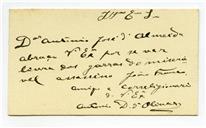 Illmo Ex. Sr.
Dr. Antonio José d'Almeida
abraça V. Exª por se ver
livre das garras do miserá
vel assassino João Franco
amigo e correligionario
de V. Exª
Antonio D. d'Oliveira